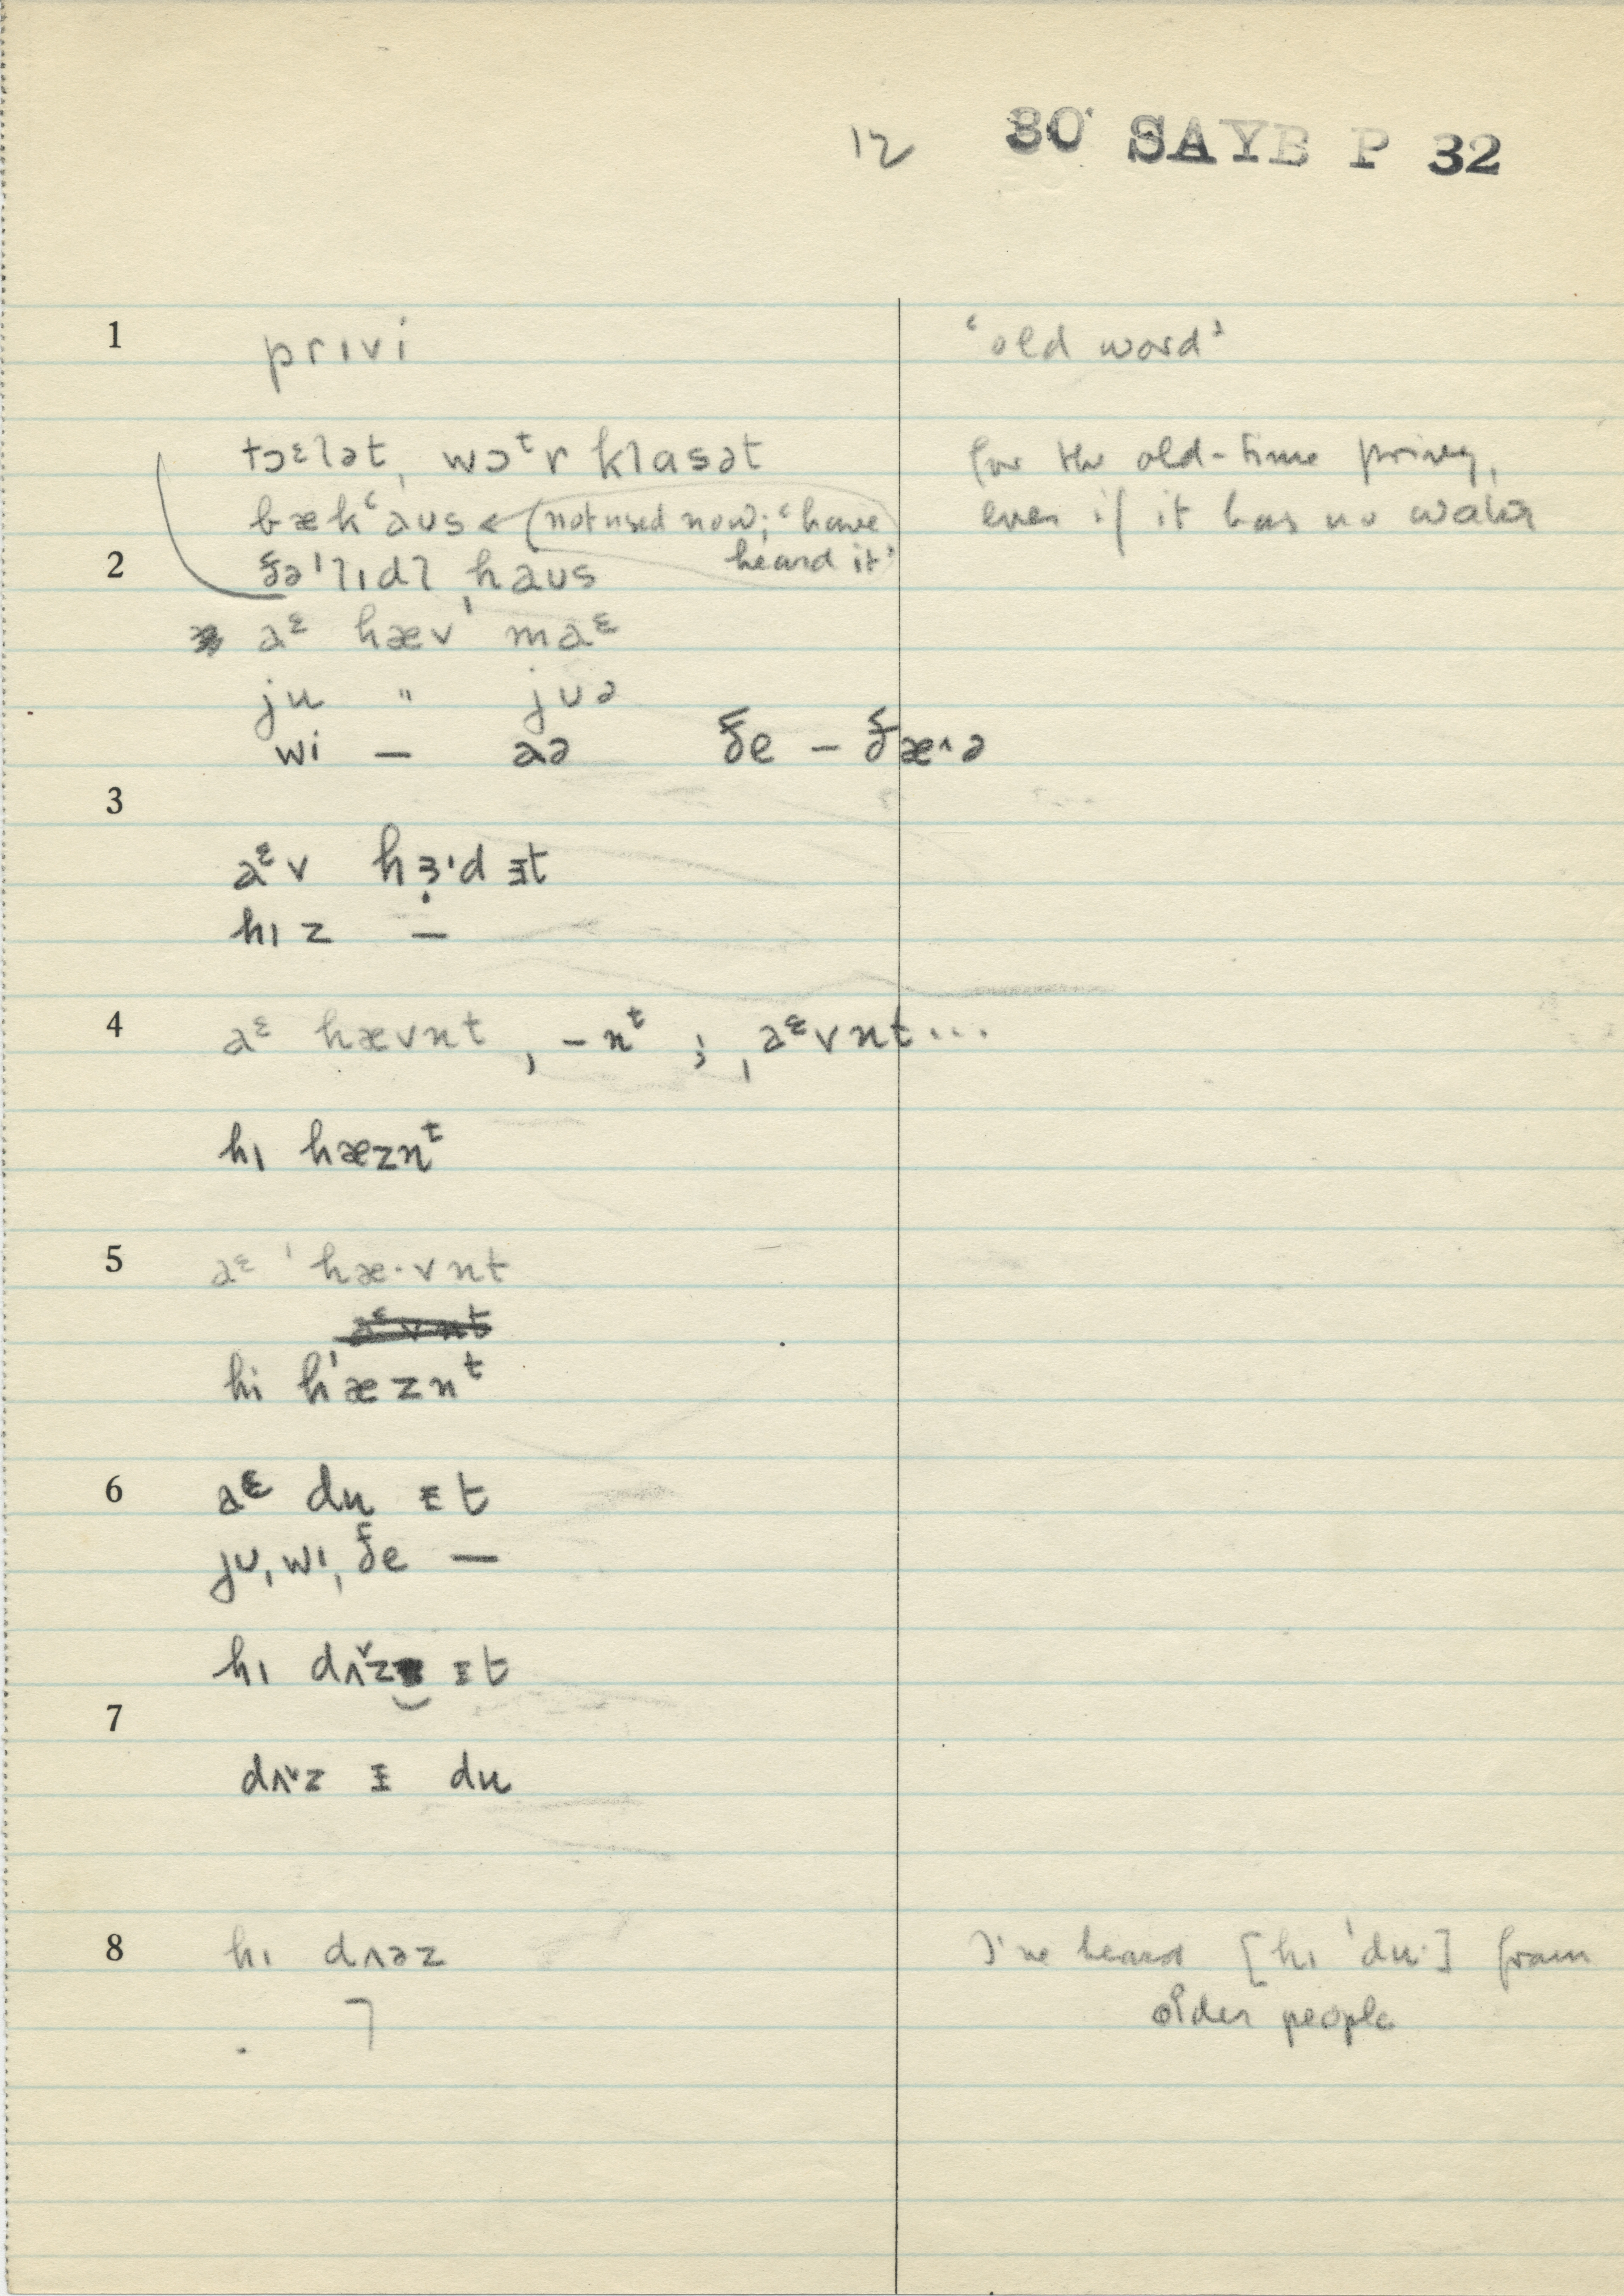 12 30 SAYB P 32
1 prɪvi ‘old word’
tɔᵋlət, wɔᵗr klasət for the old-time privy,
bækʿaus ← (not used now; ‘have even if it has no water
heard it’
2 ðəˈlɪdl ˌhaus
aᵋ hæv maᵋ
ju " juə
wi — aə ðe — ðæ˄ə
3
aᵋv hɜ̣ˈd ɪt
hɪz —
4 aᵋ hævnt, –nᵗ ; ˌaᵋvnt...
hɪ hæznᵗ
5 aᵋ ˈhæ·vnt
hi hˈæznᵗ
6 aᵋ du ɪt
ju, wɪ, ðe —
hɪ dʌ˅z ɪt
7
dʌ˅z ɪ du
8 hɪ dʌəz I've heard [hɪ ˈdu·] from
older people